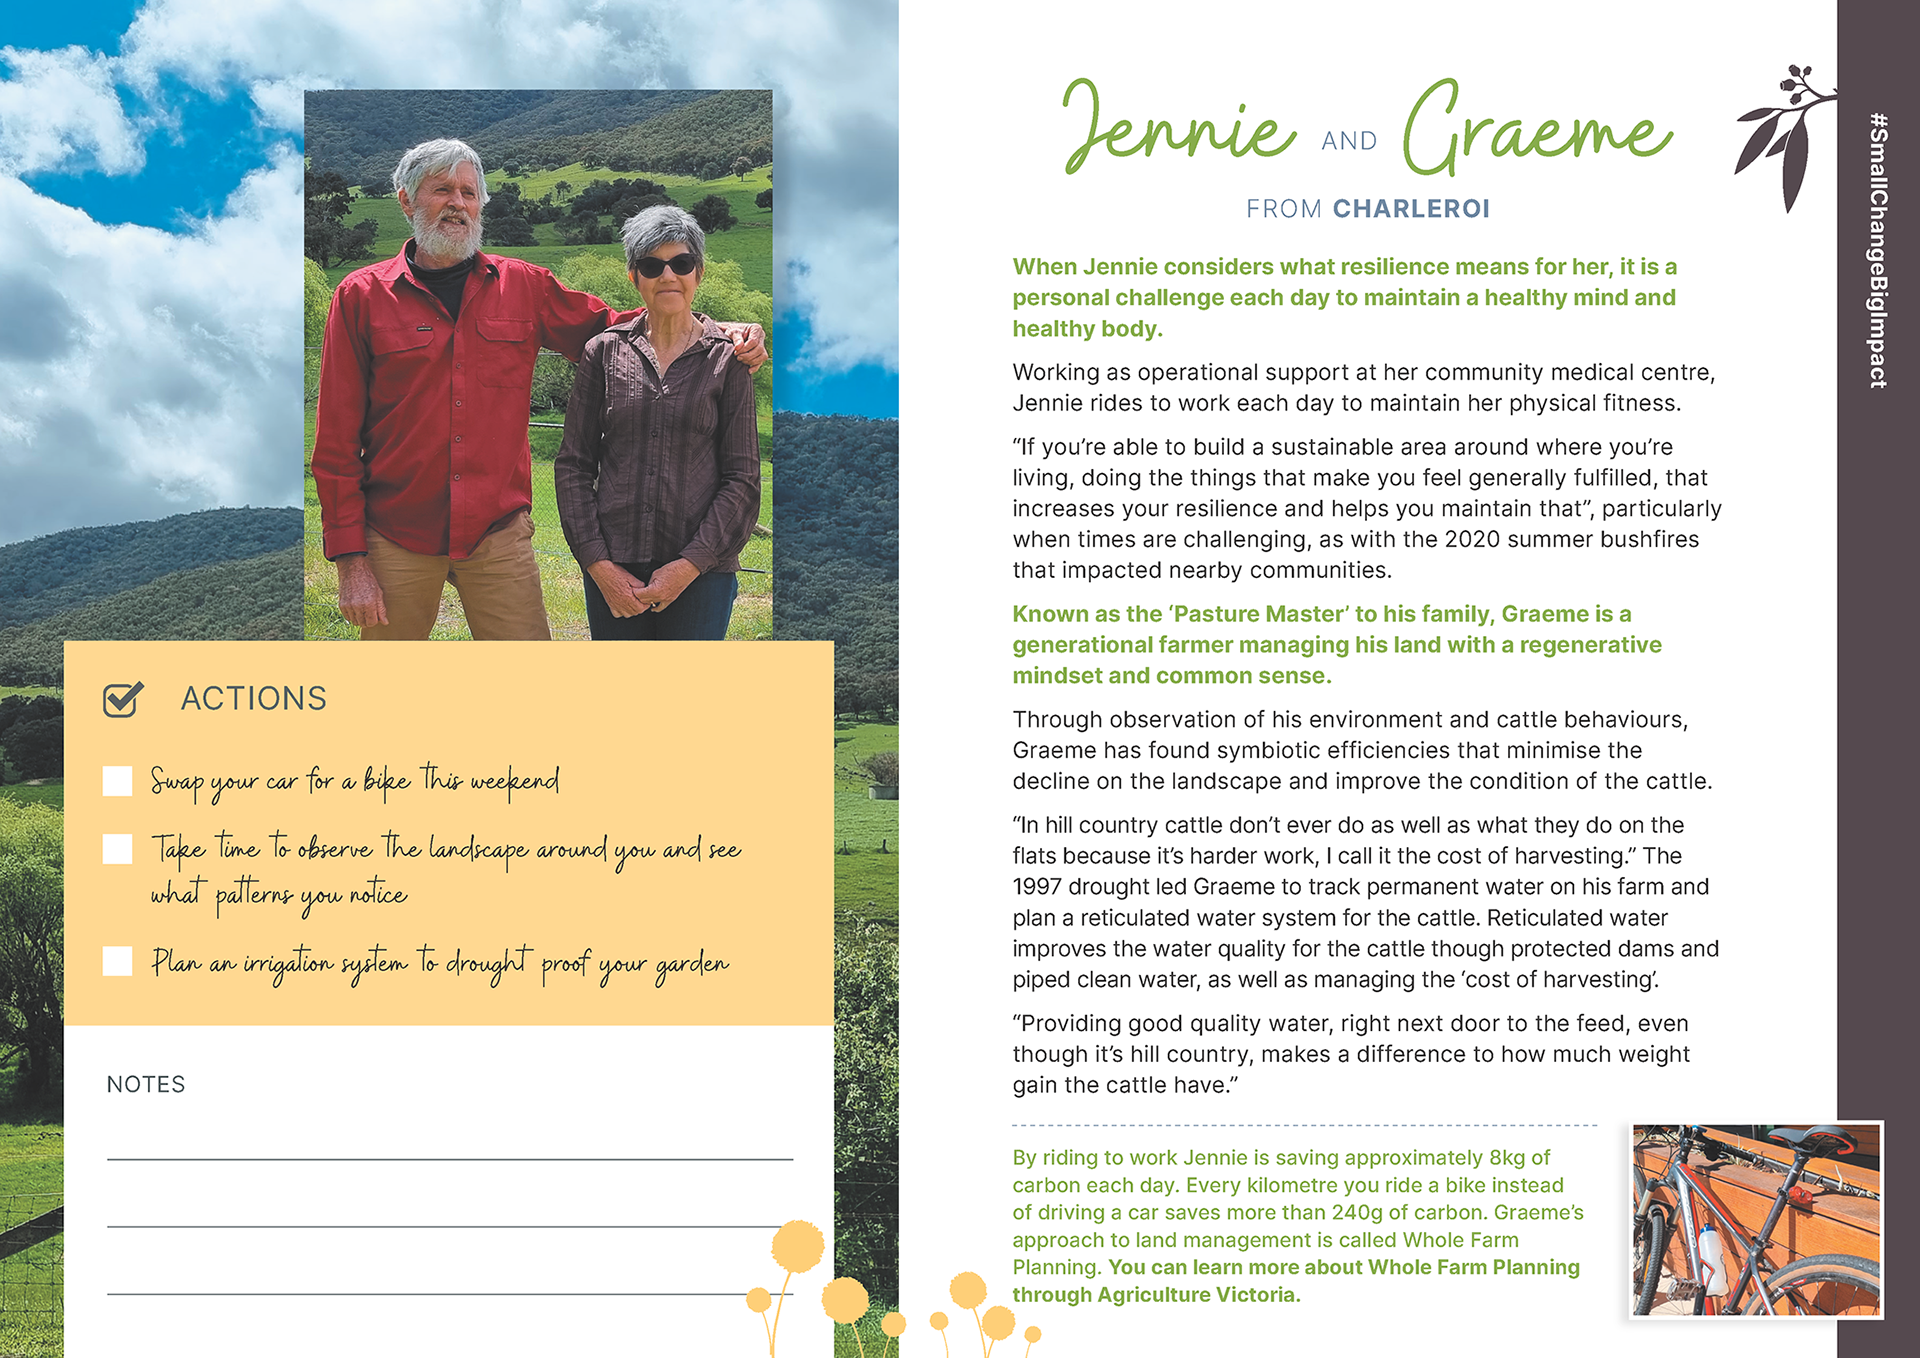 ACTIONS
Swap your car for a bike this weekend
Take time to observe the landscape around you and see
what patterns you notice
Plan an irrigation system to drought proof your garden
NOTES
Jennie AND Graeme
FROM CHARLEROI
When Jennie considers what resilience means for her, it is a
personal challenge each day to maintain a healthy mind and
healthy body.
Working as operational support at her community medical centre,
Jennie rides to work each day to maintain her physical fitness.
“If you’re able to build a sustainable area around where you’re
living, doing the things that make you feel generally fulfilled, that
increases your resilience and helps you maintain that”, particularly
when times are challenging, as with the 2020 summer bushfires
that impacted nearby communities.
Known as the ‘Pasture Master’ to his family, Graeme is a
generational farmer managing his land with a regenerative
mindset and common sense.
Through observation of his environment and cattle behaviours,
Graeme has found symbiotic efficiencies that minimise the
decline on the landscape and improve the condition of the cattle.
“In hill country cattle don’t ever do as well as what they do on the
flats because it’s harder work, I call it the cost of harvesting.” The
1997 drought led Graeme to track permanent water on his farm and
plan a reticulated water system for the cattle. Reticulated water
improves the water quality for the cattle though protected dams and
piped clean water, as well as managing the ‘cost of harvesting’.
“Providing good quality water, right next door to the feed, even
though it’s hill country, makes a difference to how much weight
gain the cattle have.”
By riding to work Jennie is saving approximately 8kg of
carbon each day. Every kilometre you ride a bike instead
of driving a car saves more than 240g of carbon. Graeme’s
approach to land management is called Whole Farm
Planning. You can learn more about Whole Farm Planning
through Agriculture Victoria.
#SmallChangeBigImpact